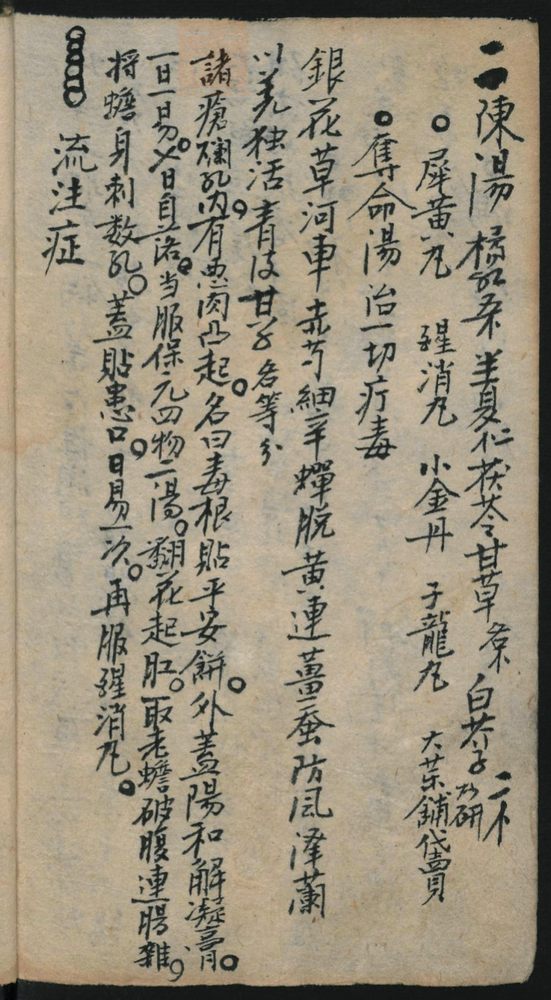 二陳湯 橘紅 半夏 仁茯苓 甘草 白芥子 研
○犀黃丸 醒消丸 小金丹 子龍丸 大藥鋪代賣
○奪命湯 治一切疔毒
銀花 草河車 赤芍 細辛 蟬脫 黃連 薑蚕 防風 澤蘭
羌独活 青皮 甘草 各等分
諸瘡爛孔內有惡肉凸起名曰毒根貼平安餅外蓋陽和解凝膏
一日一易 日自落當服保元四物二湯翻花起肛取老蟾破腹連腸雜
將蟾身刺数孔蓋貼患口日易一次再服醒消丸
流注症